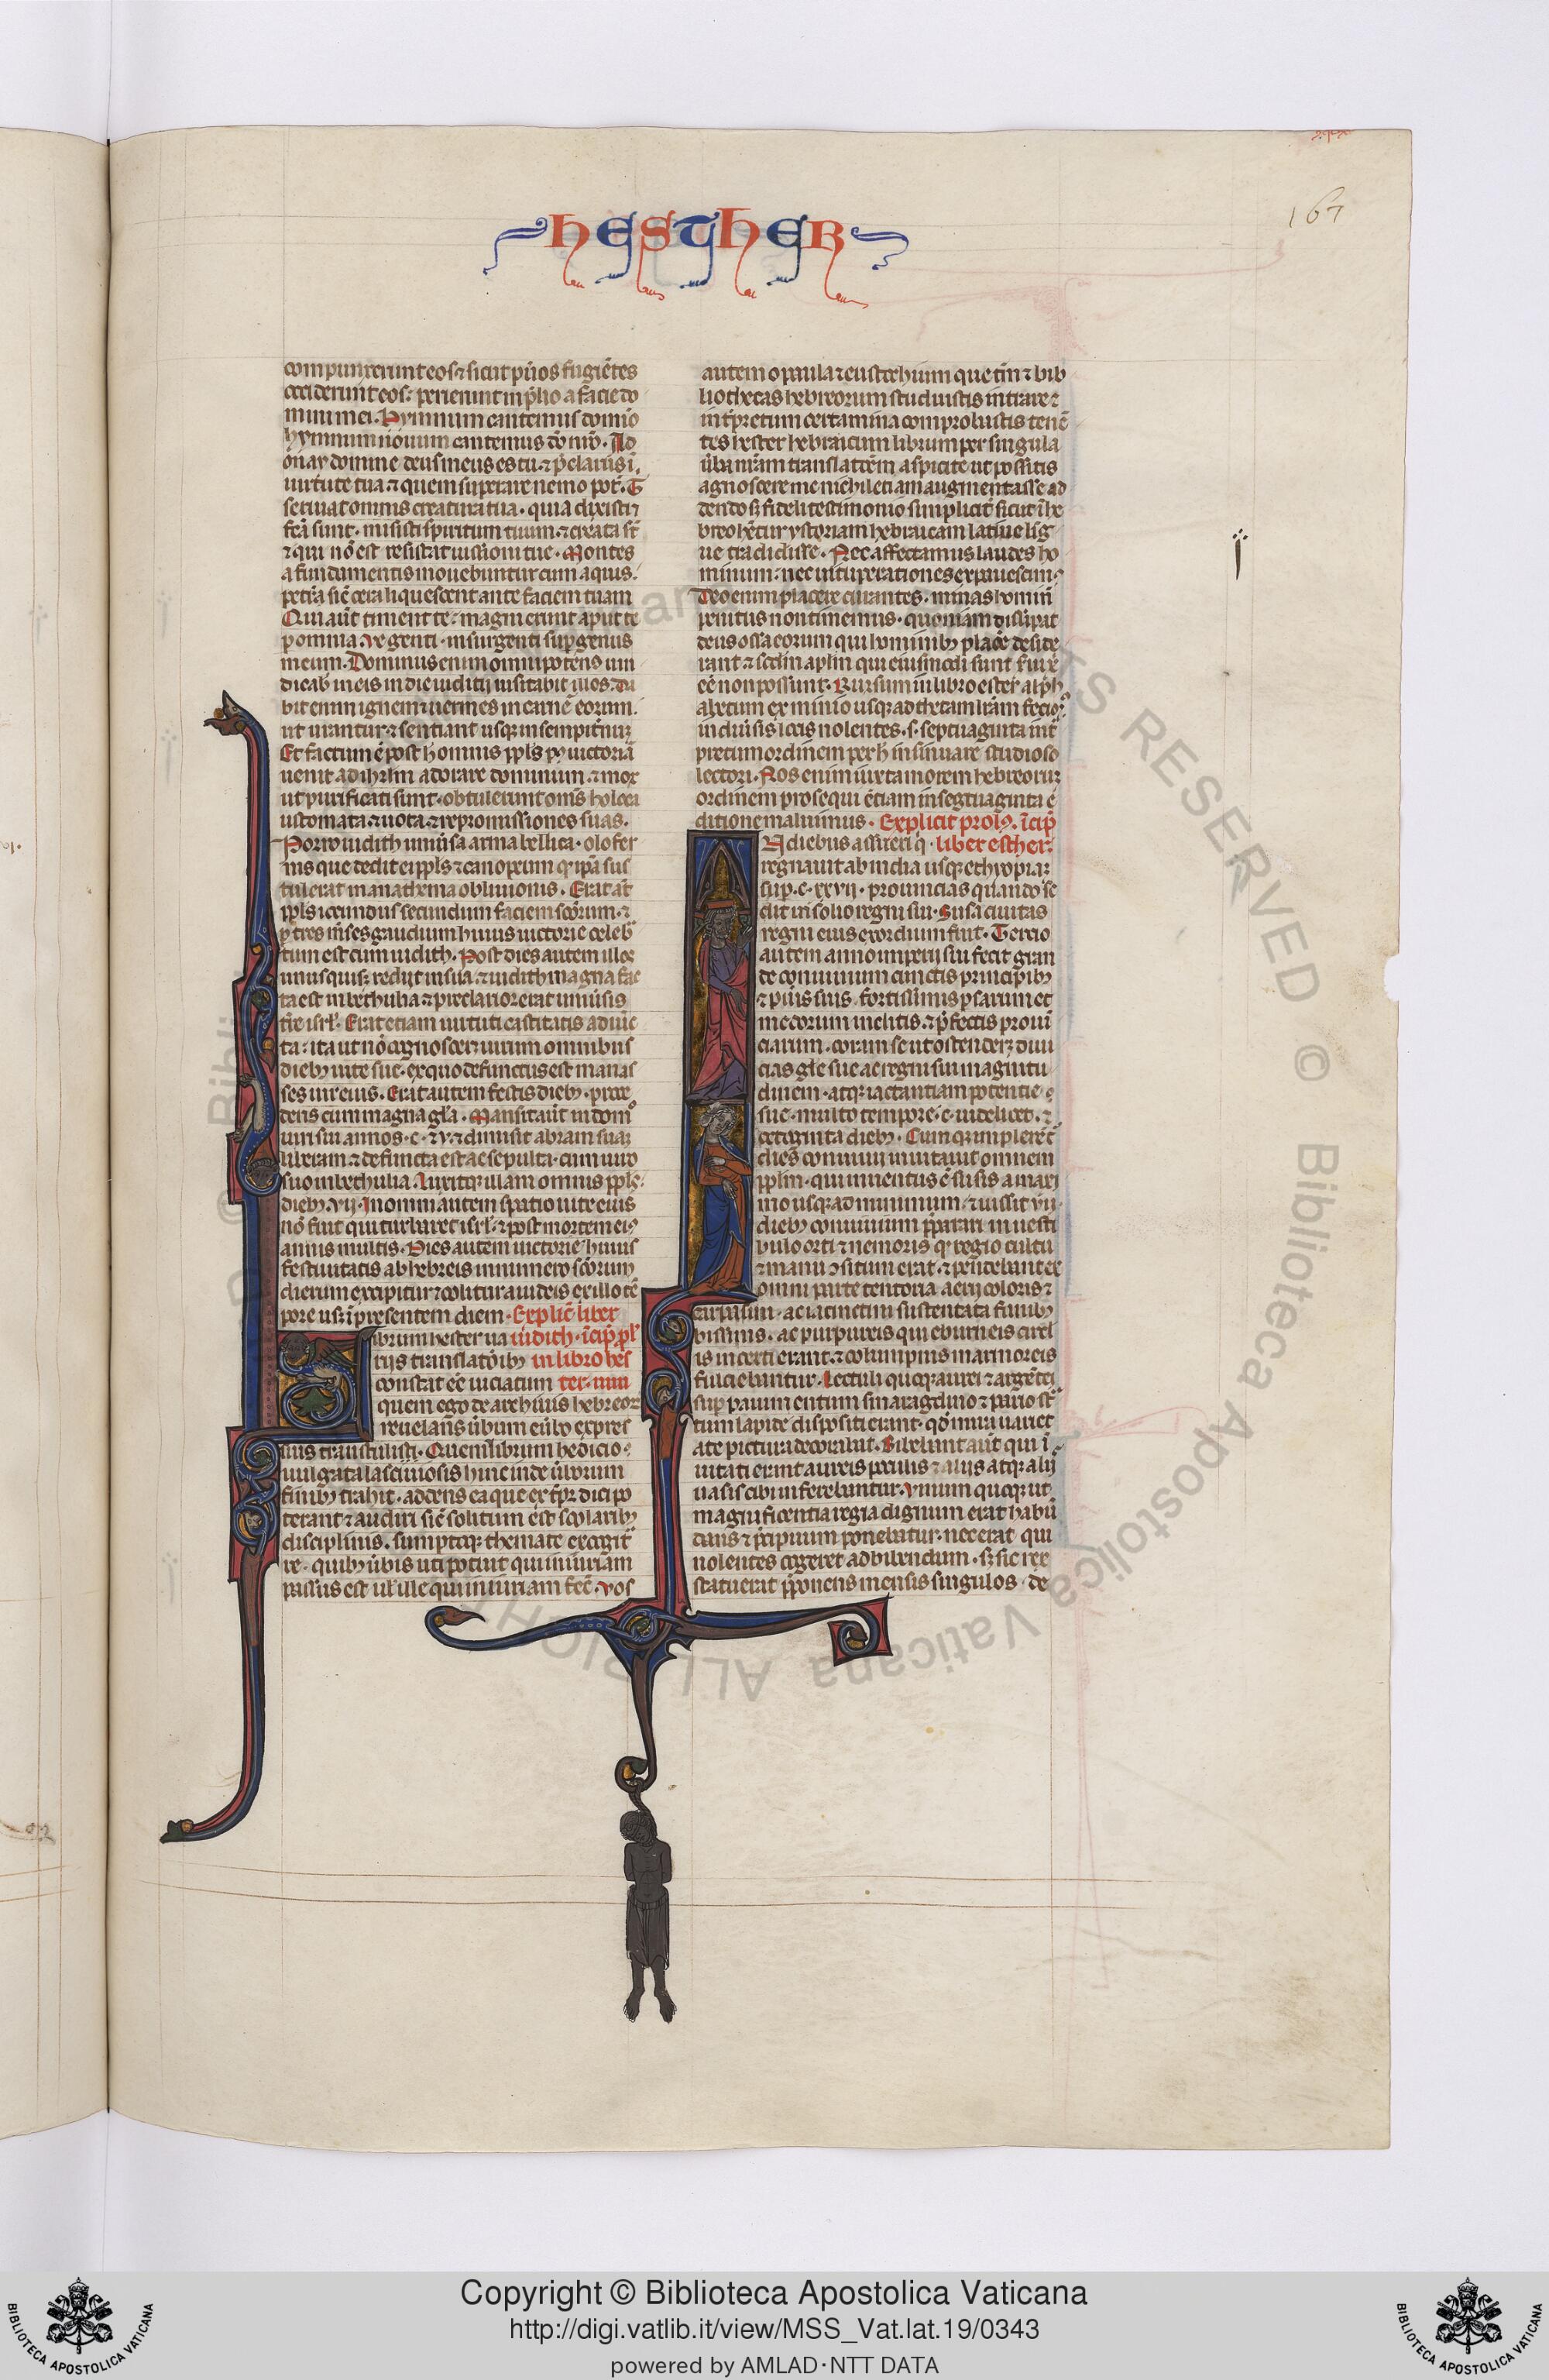 HESTHER
167
compunxerunt eos ⁊ sicut pu̾os fugie̅tes
occiderunt eos: perierunt in p̾lio a facie do
mini mei. Hymnum cantemus domi̅o
hymnum nouum cantemus d̅o n̅r̅o. Ad
onay domine deus meus es tu ⁊ p̾clarus i̅
uirtute tua ⁊ quem superare nemo pot̾. T
seruiat omnis creatura tua. quia dixisti ⁊
fc̅a sunt. misisti spiritum tuum. ⁊ creata st̅
⁊ qui no̅ est resistat iussioni tue. Montes
a fundamentis mouebuntur cum aquis.
petra sic̅ cera liquescent ante faciem tuam
Qui aut̅ timent te. magni erunt aput te
p omnia. Ve genti. insurgenti sup̾ genus
meum. Dominus enim omnipotens uin
dicab̾ in eis in die iudicij uisitabit illos. da
bit enim ignem ⁊ uermes in carne̅ eorum.
ut urantur ⁊ sentiant usq; in sempit̾nu;
Et factum e̅ post h̾ omnis ppl̅s p̾ uictoria̅
uenit ad ih̾rl̅m adorare dominum. ⁊ mox
ut purificati sunt. obtulerunt om̅s holoca
ustomata ⁊ uota. ⁊ repromissiones suas.
Porro iudith uniu̾sa arma bellica. olofer
nis que dedit ei ppl̅s ⁊ canopeum q̾ ip̅a sus
tulerat in anathema obliuionis. Erat au̅t
ppl̅s iocundus secundum faciem sc̅orum. ⁊
p̾ tres m̅ses gaudium huius uictorie celeb̾
tum est cum iudith. Post dies autem illos
unusquis; rediit in sua. ⁊ iudith magna fac
ta est in bethulia ⁊ preclarior erat uniu̾sis
t̾re isrl̅. Erat etiam uirtuti castitatis adiu̅c
ta. ita ut no̅ cognosceret uirum omnibus
dieb; uite sue. ex quo defunctus est manas
ses uir eius. Erat autem festis dieb;. proce
dens cum magna gl̅a. Mansit aut̅ in domo
uiri sui annos. c. ⁊ v. ⁊ dimisit abram sua;
liberam ⁊ defuncta est ac sepulta. cum uiro
suo in bethulia. Luxitq; illam omnis ppl̅s.
dieb; .vij. In omni autem spatio uite eius
no̅ fuit qui turbaret isrl̅. ⁊ post mortem ei9
annis multis. Dies autem uictorie huius
festiuitatis ab hebreis in numero sc̅orum
dierum excipitur ⁊ colitur a iudeis ex illo te̅
pore us; i̅ presentem diem. Explic̅ liber
ibrum hester ua iudith. i̅cip̾. p̾l̾
rijs translatorib; in libro hes
constat e̅e̅ uiciatum ter. niu
quem ego de archiuis hebreor;
reuelans u̾bum eu̾bo expres
sius transtulisti. Quem librum hedicio
uulgata laciniosis hinc inde u̾borum
finib; trahit. addens ea que ex t̾p̾ dici po
terant ⁊ audiri sic̅ solitum est scolarib;
disciplinis. sumptoq; themate excogit̾
re. quib; u̾bis uti potuit qui iniuriam
passus est ul̾ ille qui iniuriam fec̅. Vos
autem o paula ⁊ eustochium que t̅m ⁊ bib
liothecas hebreorum studuistis intrare ⁊
int̾pretum certamina comprobastis tene̅
tes hester hebraicum librum per singula
u̾ba nr̅am translatc̅em aspicite ut possitis
agnoscere me nichil etiam augmentasse ad
dendo s; fideli testimonio simplicit̾ sicut i̅he
breo h̾e̅tur ystoriam hebraicam latine lig̅
ue tradidisse. Nec affectamus laudes ho
minum. nec uituperationes expauescim9
Deo enim placere curantes. minas homin̅
penitus non timemus. quoniam dissipat
deus ossa eorum qui hominib; place̅ deside
rant ⁊ sc̅d̅m apl̅m qui eiusmodi sunt s̾ui x̅
e̅e̅ non possunt. Rursum in libro ester alph
abetum ex minio usq; ad thetam lr̅am fecim9.
in diu̾sis locis uolentes. s. septuaginta int̾
pretum ordinem per h̾ insinuare studioso
lectori. Nos enim iuxta morem hebreoru;
ordinem prosequi e̅tiam in septuaginta e̅
ditione maluimus. Explicit prol9. i̅cip̾
N diebus assueri q̾ liber esther.
regnauit ab india usq; ethyopia;
sup̾. c. xxvij. prouincias quando se
dit in solio regni sui. Susa ciuitas
regni eius exordium fuit. Tercio
autem anno imperij sui fecit gran
de conuiuium cunctis principib;
⁊ pu̾is suis. fortissimis p̾sarum et
medorum inclitis. ⁊ p̾fectis proui̅
ciarum. coram se ut ostenderet diui
cias gl̅e sue ac regni sui magnitu
dinem. atq; iactantiam potentie
sue. multo tempore. c. uidelicet. ⁊
octoginta dieb;. Cumq; implere̅t̾
dies conuiuij inuitauit omnem
ppl̅m. qui inuentus e̅ susis a maxi
mo usq; ad minimum. ⁊ iussit vij.
dieb; conuiuium p̾parari in uesti
bulo orti ⁊ nemoris q̾ regio cultu
⁊ manu ɔsitum erat. ⁊ pendebant ex
omni parte tentoria. aerij coloris ⁊
carpasini. ac iacinctini sustentata funib;
bissinis. ac purpureis qui eburneis circl̾
is inserti erant. ⁊ columpnis marmoreis
fulciebantur. Lectuli quoq; aurei ⁊ arge̅tei
sup̾ pauimentum smaragdino ⁊ pario st̾
tum lapide dispositi erant. qd̾ mira uariet
ate pictura decorabat. Bibebant aut̅ qui i̅
uitati erant aureis poculis ⁊ alijs atq; alij
uasis cibi inferebantur. Vinum quoq; ut
magnificentia regia dignum erat habu̅
dans ⁊ p̾cipuum ponebatur. nec erat qui
nolentes cogeret ad bibendum. s; sic rex
statuerat p̾ponens mensis singulos. de
Copyright © Biblioteca Apostolica Vaticana
http://digi.vatlib.it/view/MSS_Vat.lat.19/0343
powered by AMLAD·NTT DATA
BIBLIOTECA APOSTOLICA VATICANA
BIBLIOTECA APOSTOLICA VATICANA